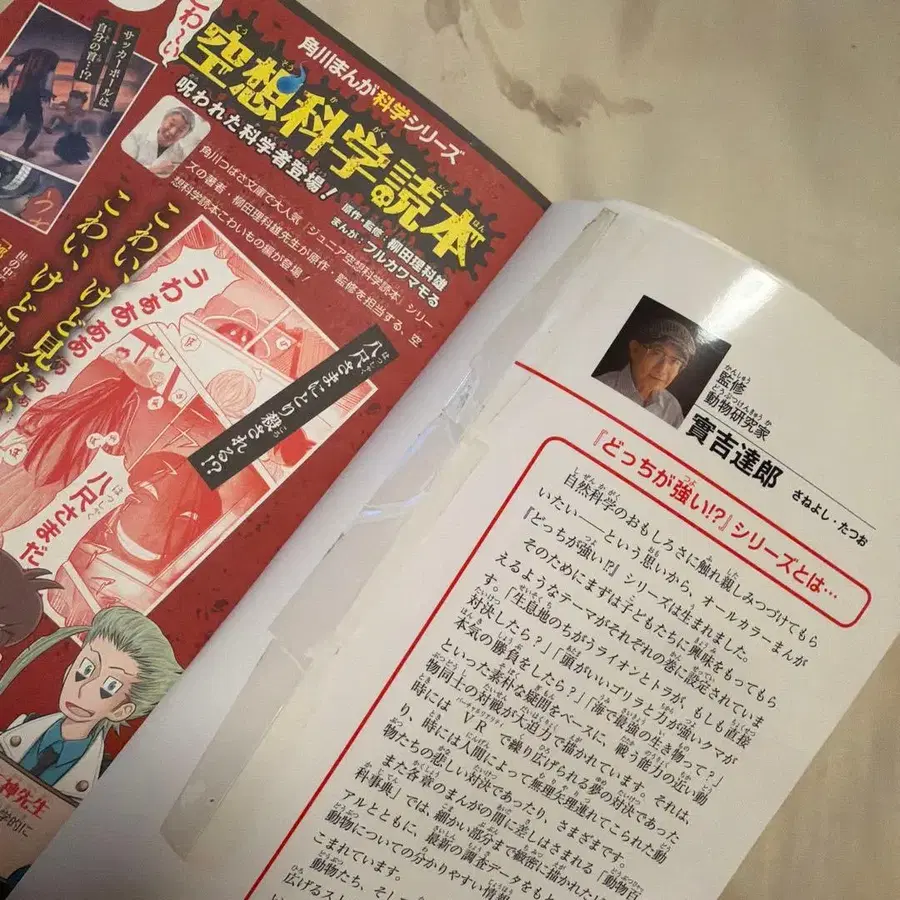 角川まんが科学シリーズ
こわ〜い
空想科学読本
呪われた科学者登場!
原作・監修:柳田理科雄
まんが:フルカワマモる
角川つばさ文庫で大人気「ジュニア空想科学読本」シリー
ズの著者・柳田理科雄先生が原作・監修を担当する、空
想科学読本こわいもの編が登場!
サッカーボールは
自分の首…!?
こわい、
こわい、けど見た
うわぁぁぁぁぁ
八尺さまにとり殺される!?
八尺さまだ
神先生
学的に
監修
動物研究家
實吉達郎
さねよし・たつお
『どっちが強い!?』シリーズとは…
自然科学のおもしろさに触れ親しみつづけてもら
いたい――という思いから、オールカラーまんが
『どっちが強い!?』シリーズは生まれました。
そのためにまずは子どもたちに興味をもってもら
えるようなテーマがそれぞれの巻に設定されていま
す。「生息地のちがうライオンとトラが、もしも直接
対決したら?」「頭がいいゴリラと力が強いクマが
本気の勝負をしたら?」「海で最強の生き物って?」
といった素朴な疑問をベースに、戦う能力の近い動
物同士の対戦が大迫力で描かれています。それは、
時にはVRで繰り広げられる夢の対決であった
り、時には人間によって無理矢理連れてこられた動
物たちの悲しい対決であったり、さまざまです。
また各章のまんがの間に差しはさまれる「動物百
科事典」では、細かい部分まで緻密に描かれたリ
アルとともに、最新の調査データをもと
動物についての分かりやすい情報
こまれています。
動物たち、そして
広げるスト